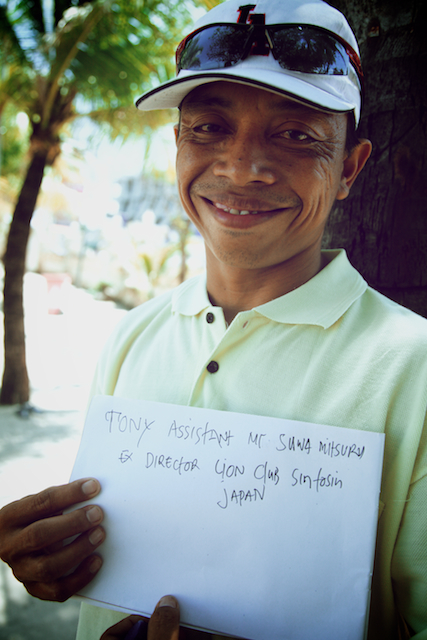 TONY ASSISTANT MR SUWA MITSURU
EX DIRECTOR LION CLUB
JAPAN